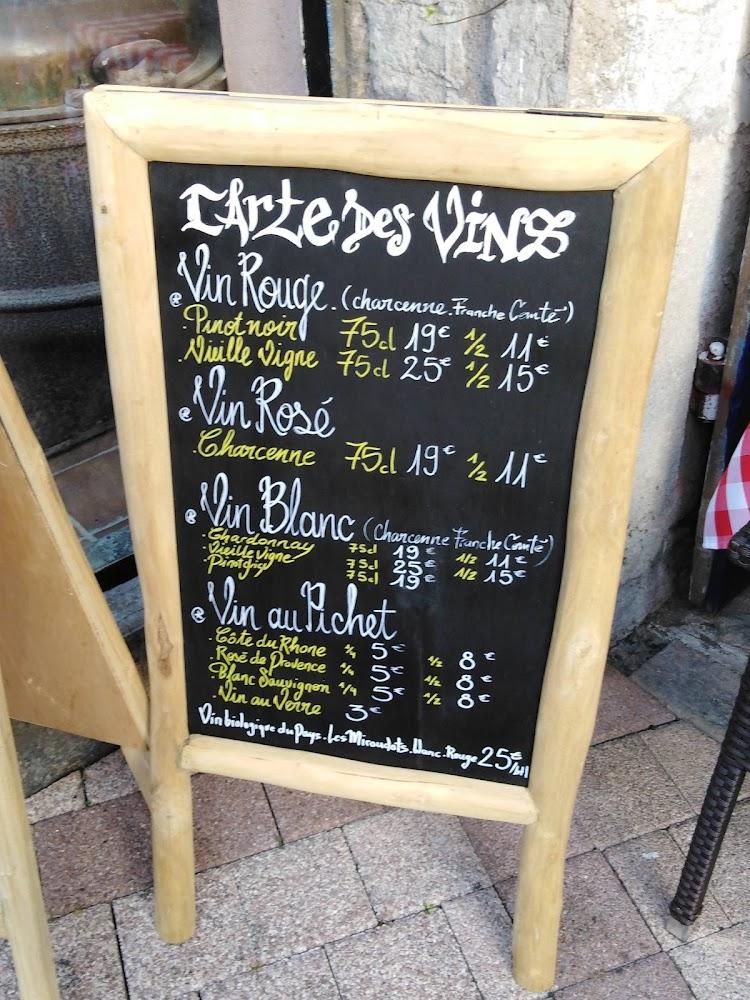 Carte Des Vins
@ Vin Rouge. (charcenne. Franche Comté)
. Pinot noir 75cl 19€ 1/2 11€
. Vieille Vigne 75cl 25€ 1/2 15€
@ Vin Rosé
. Charcenne 75cl 19€ 1/2 11€
@ Vin Blanc (Charcenne Franche Comté)
. Chardonnay 75cl 19€ 1/2 11€
. Vieille vigne 75cl 25€ 1/2 15€
. Pinot gris 75cl 19€
@ Vin au Pichet
. Côte du Rhone 1/4 5€ 1/2 8€
. Rosé de Provence 1/4 5€ 1/2 8€
. Blanc Sauvignon 1/4 5€ 1/2 8€
. Vin au Verre 3€
Vin biologique du Pays. Les Miroudots. blanc. Rouge 25€/btl